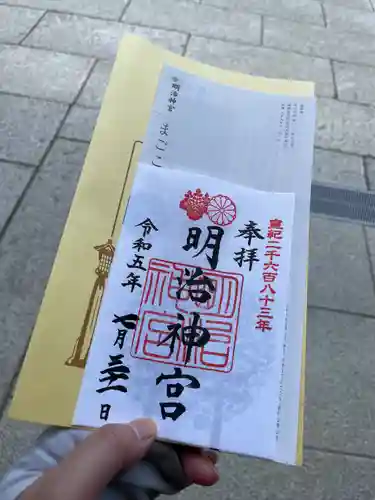 皇紀二千六百八十三年
奉拝
明治神宮
明治神宮
令和五年
七月三十一日
明治神宮
まごこ